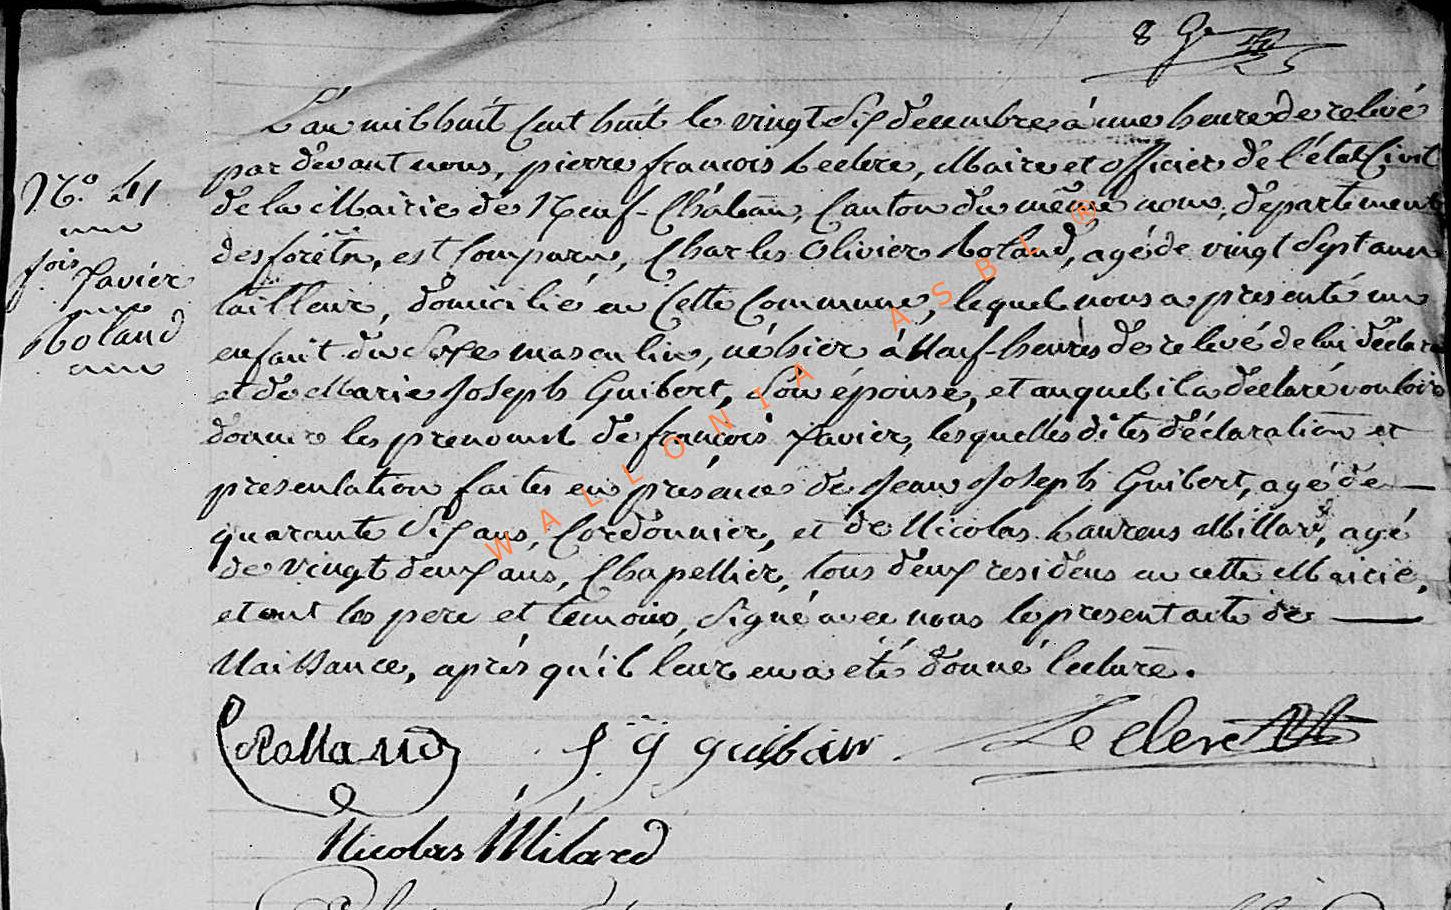 8
L'an mil huit cent huit le vingt six decembre à une heure de relevé
par devant nous, pierre françois Leclerc, Maire et officier de l'état Civil
de la Mairie de Neuf-Château, Canton du même nom, département
des forêts, est Comparu, Charles Olivier Roland, agé de vingt sept ans
tailleur, domicilié en Cette Commune, lequel nous a presenté un
enfant du Sexe masculin, né hier à Neuf-heures de relevé de lui déclarant
et de Marie Joseph Guibert, Son épouse, et auquel il a déclaré vouloir
donner les prenoms de françois Xavier, lesquelles dites déclaration et
presentation faites en présence de Jean Joseph Guibert, agé de
quarante Six ans, Cordonnier, et de Nicolas Laurens Millard, agé
de vingt deux ans, Chapellier, tous deux residens en cette Mairie,
et ont les pere et temoins, Signé avec nous le present acte de
Naissance, après qu'il leur en a eté donné lecture.
N.° 41
fois Xavier
Roland
Rolland J g guibair Leclerc
Nicolas Milard
WALLONIA ASBL ®